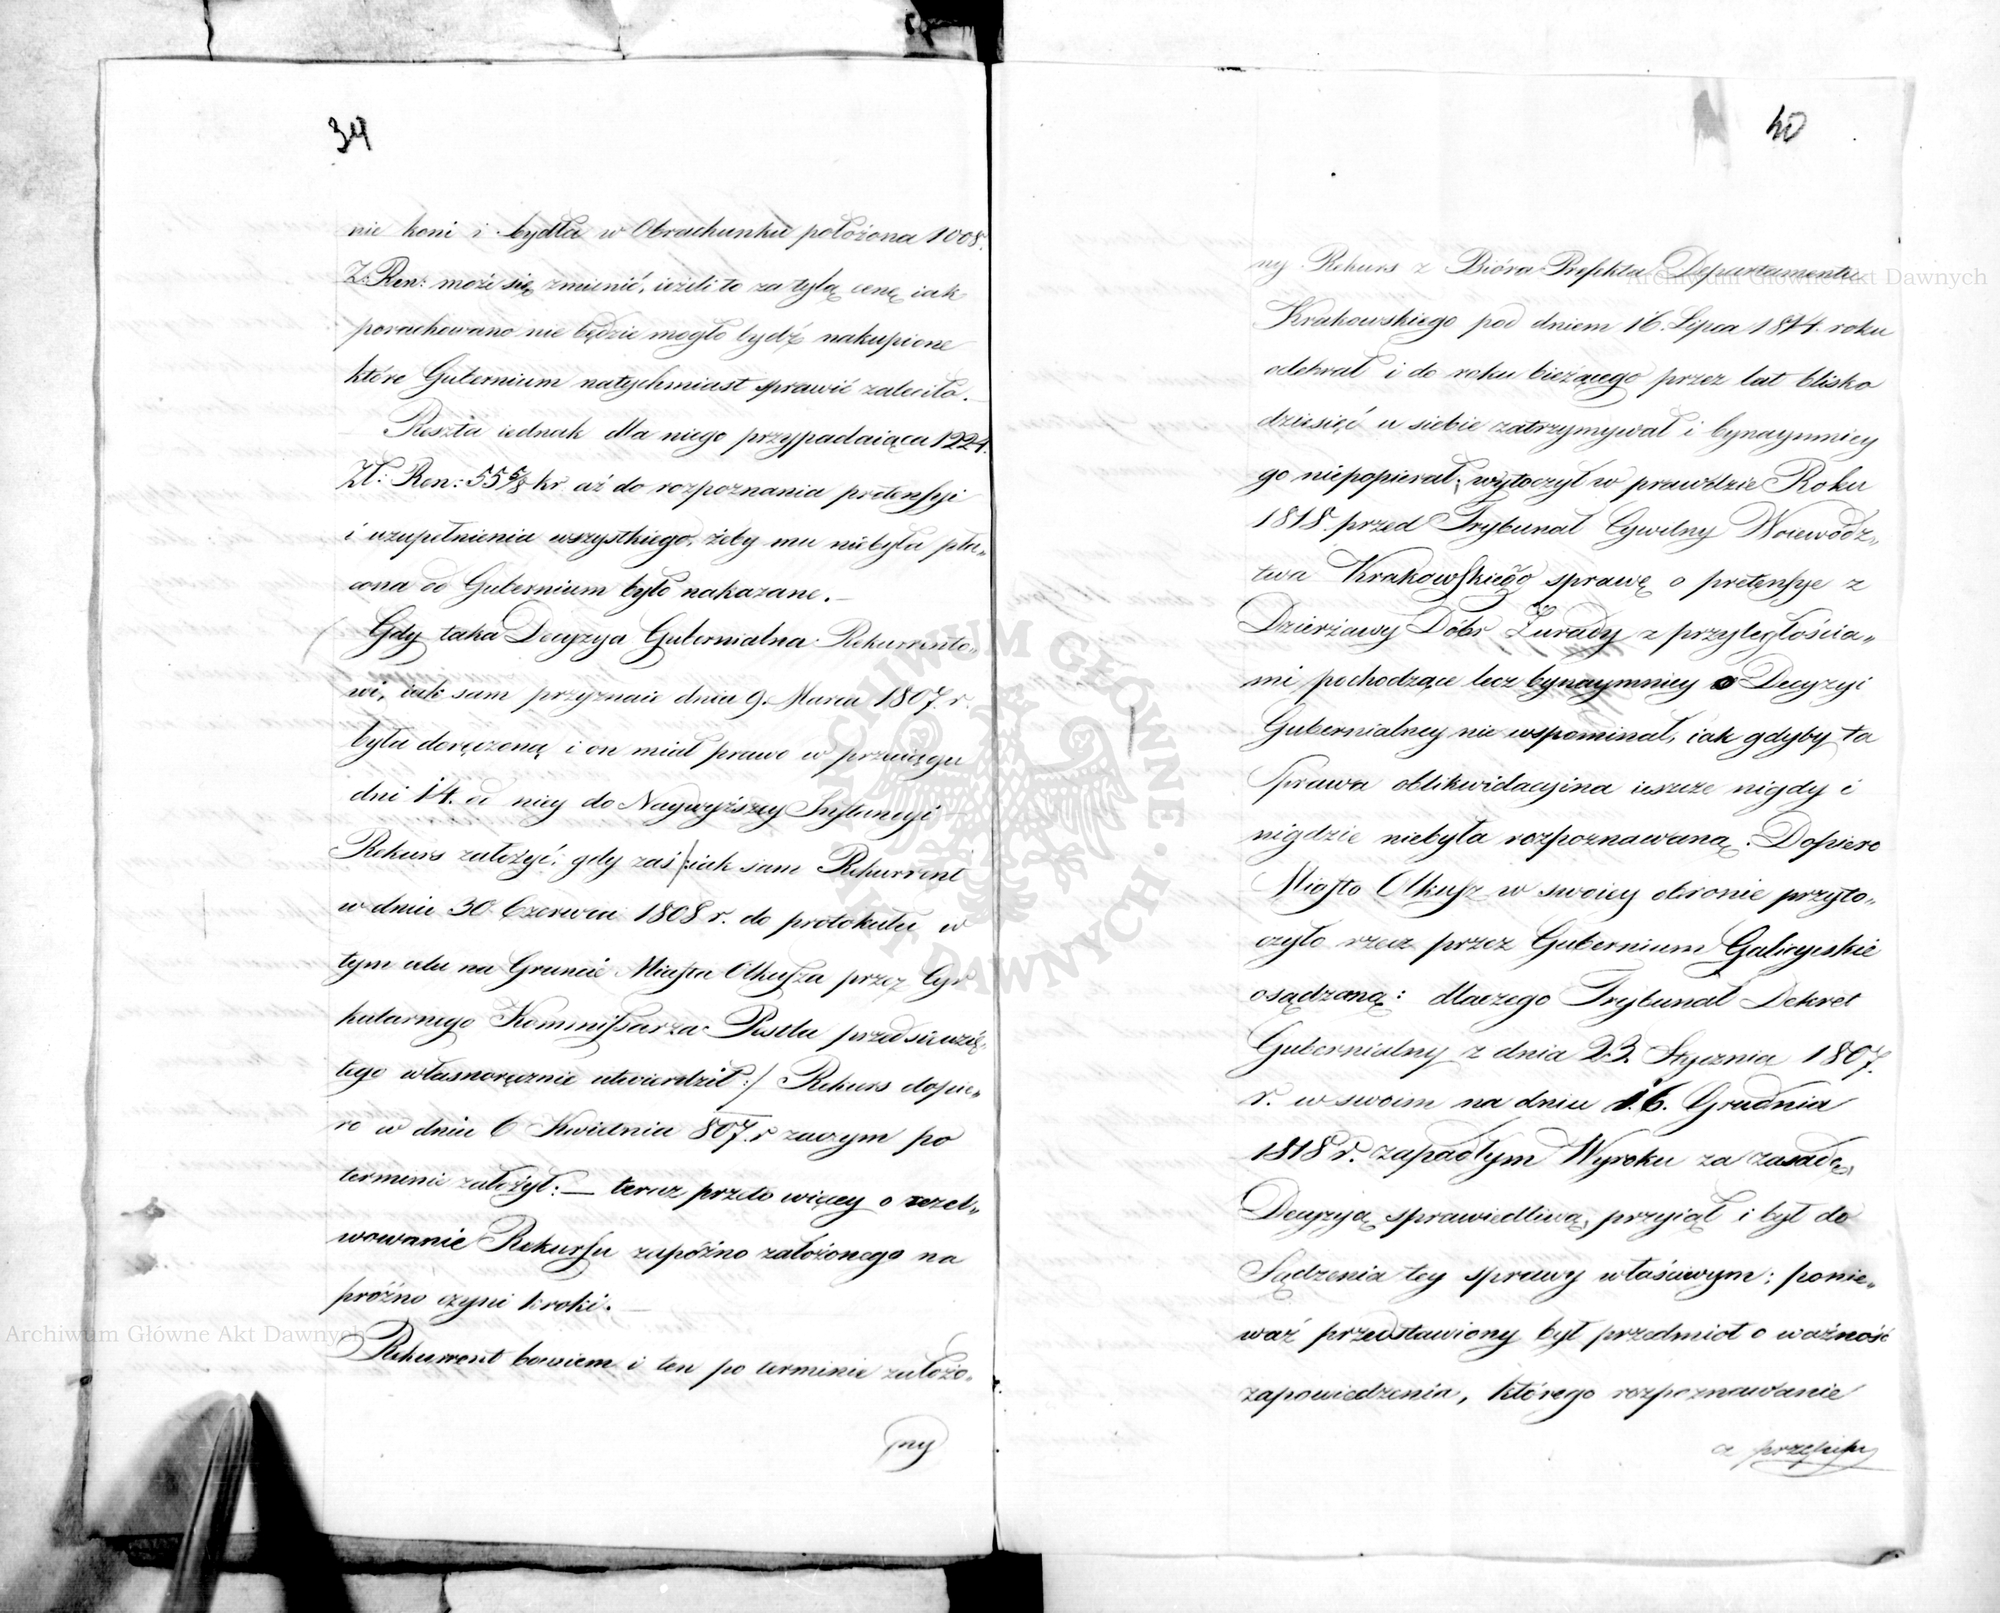 39
nie koni i bydła w Obrachunku położona 1008.
Z: Ren: może się zmienić, ieżeli to za tylą cenę iak
porachowano nie będzie mogło bydź nakupione
które Gubernium natychmiast sprawić zaleciło.
Reszta iednak dla niego przypadaiąca 1224.
Zł: Ren: 55 5/8 kr. aż do rozpoznania pretensyi
i uzupełnienia wszystkiego, żeby mu niebyła pła„
cona od Gubernium było nakazane.—
Gdy taka Decyzya Gubernialna Rekurrento„
wi, iak sam przyznaie dnia 9. Marca 1807. r.
była doręczoną i on miał prawo w przeciągu
dni 14. od niey do Naywyższey Instancyi
Rekurs założyć; gdy zaś /:iak sam Rekurrent
w dniu 30 Czerwca 1808 r. do protokułu w
tym celu na Gruncie Miasta Olkusza przez Cyr
kularnego Kommissarza Postla przedsięwzię„
tego własnoręcznie utwierdził:/ Rekurs dopie„
ro w dniu 6 Kwietnia 807. r zaczym po
terminie założył.— teraz przeto więcy o rezol„
wowanie Rekursu zapóźno założonego na
próżno czyni kroki.—
Rekurrent bowiem i ten po terminie założo„
ny
40
ny Rekurs z Bióra Prefekta Departamentu
Krakowskiego pod dniem 16. Lipca 1814. roku
odebrał i do roku bieżącego przez lat blisko
dziesięć u siebie zatrzymywał i bynaymniey
go niepopierał; wytoczył w prawdzie Roku
1818. przed Trybunał Cywilny Woiewódz„
twa Krakowskiego sprawę o pretensye z
Dzierżawy Dóbr Żurady z przyległościa„
mi pochodzące lecz bynaymniey o Decyzyi
Gubernialney nie wspominał, iak gdyby ta
Sprawa oblikwidacyina ieszcze nigdy i
nigdzie niebyła rozpoznawaną. Dopiero
Miasto Olkusz w swoiey obronie przyto„
czyło rzecz przez Gubernium Galicyiskie
osądzoną: dlaczego Trybunał Dekret
Gubernialny z dnia 23. Stycznia 1807.
r. w swoim na dniu 16. Grudnia
1818 r. zapadłym Wyroku za zasadę,
Decyzyą sprawiedliwą, przyiął i był do
Sądzenia tey sprawy właściwym; ponie„
waż przedstawiony był przedmiot o ważność
zapowiedzenia, którego rozpoznawanie
a przepisu
Archiwum Główne Akt Dawnych
Archiwum Główne Akt Dawnych
ARCHIWUM GŁÓWNE · AKT DAWNYCH ·